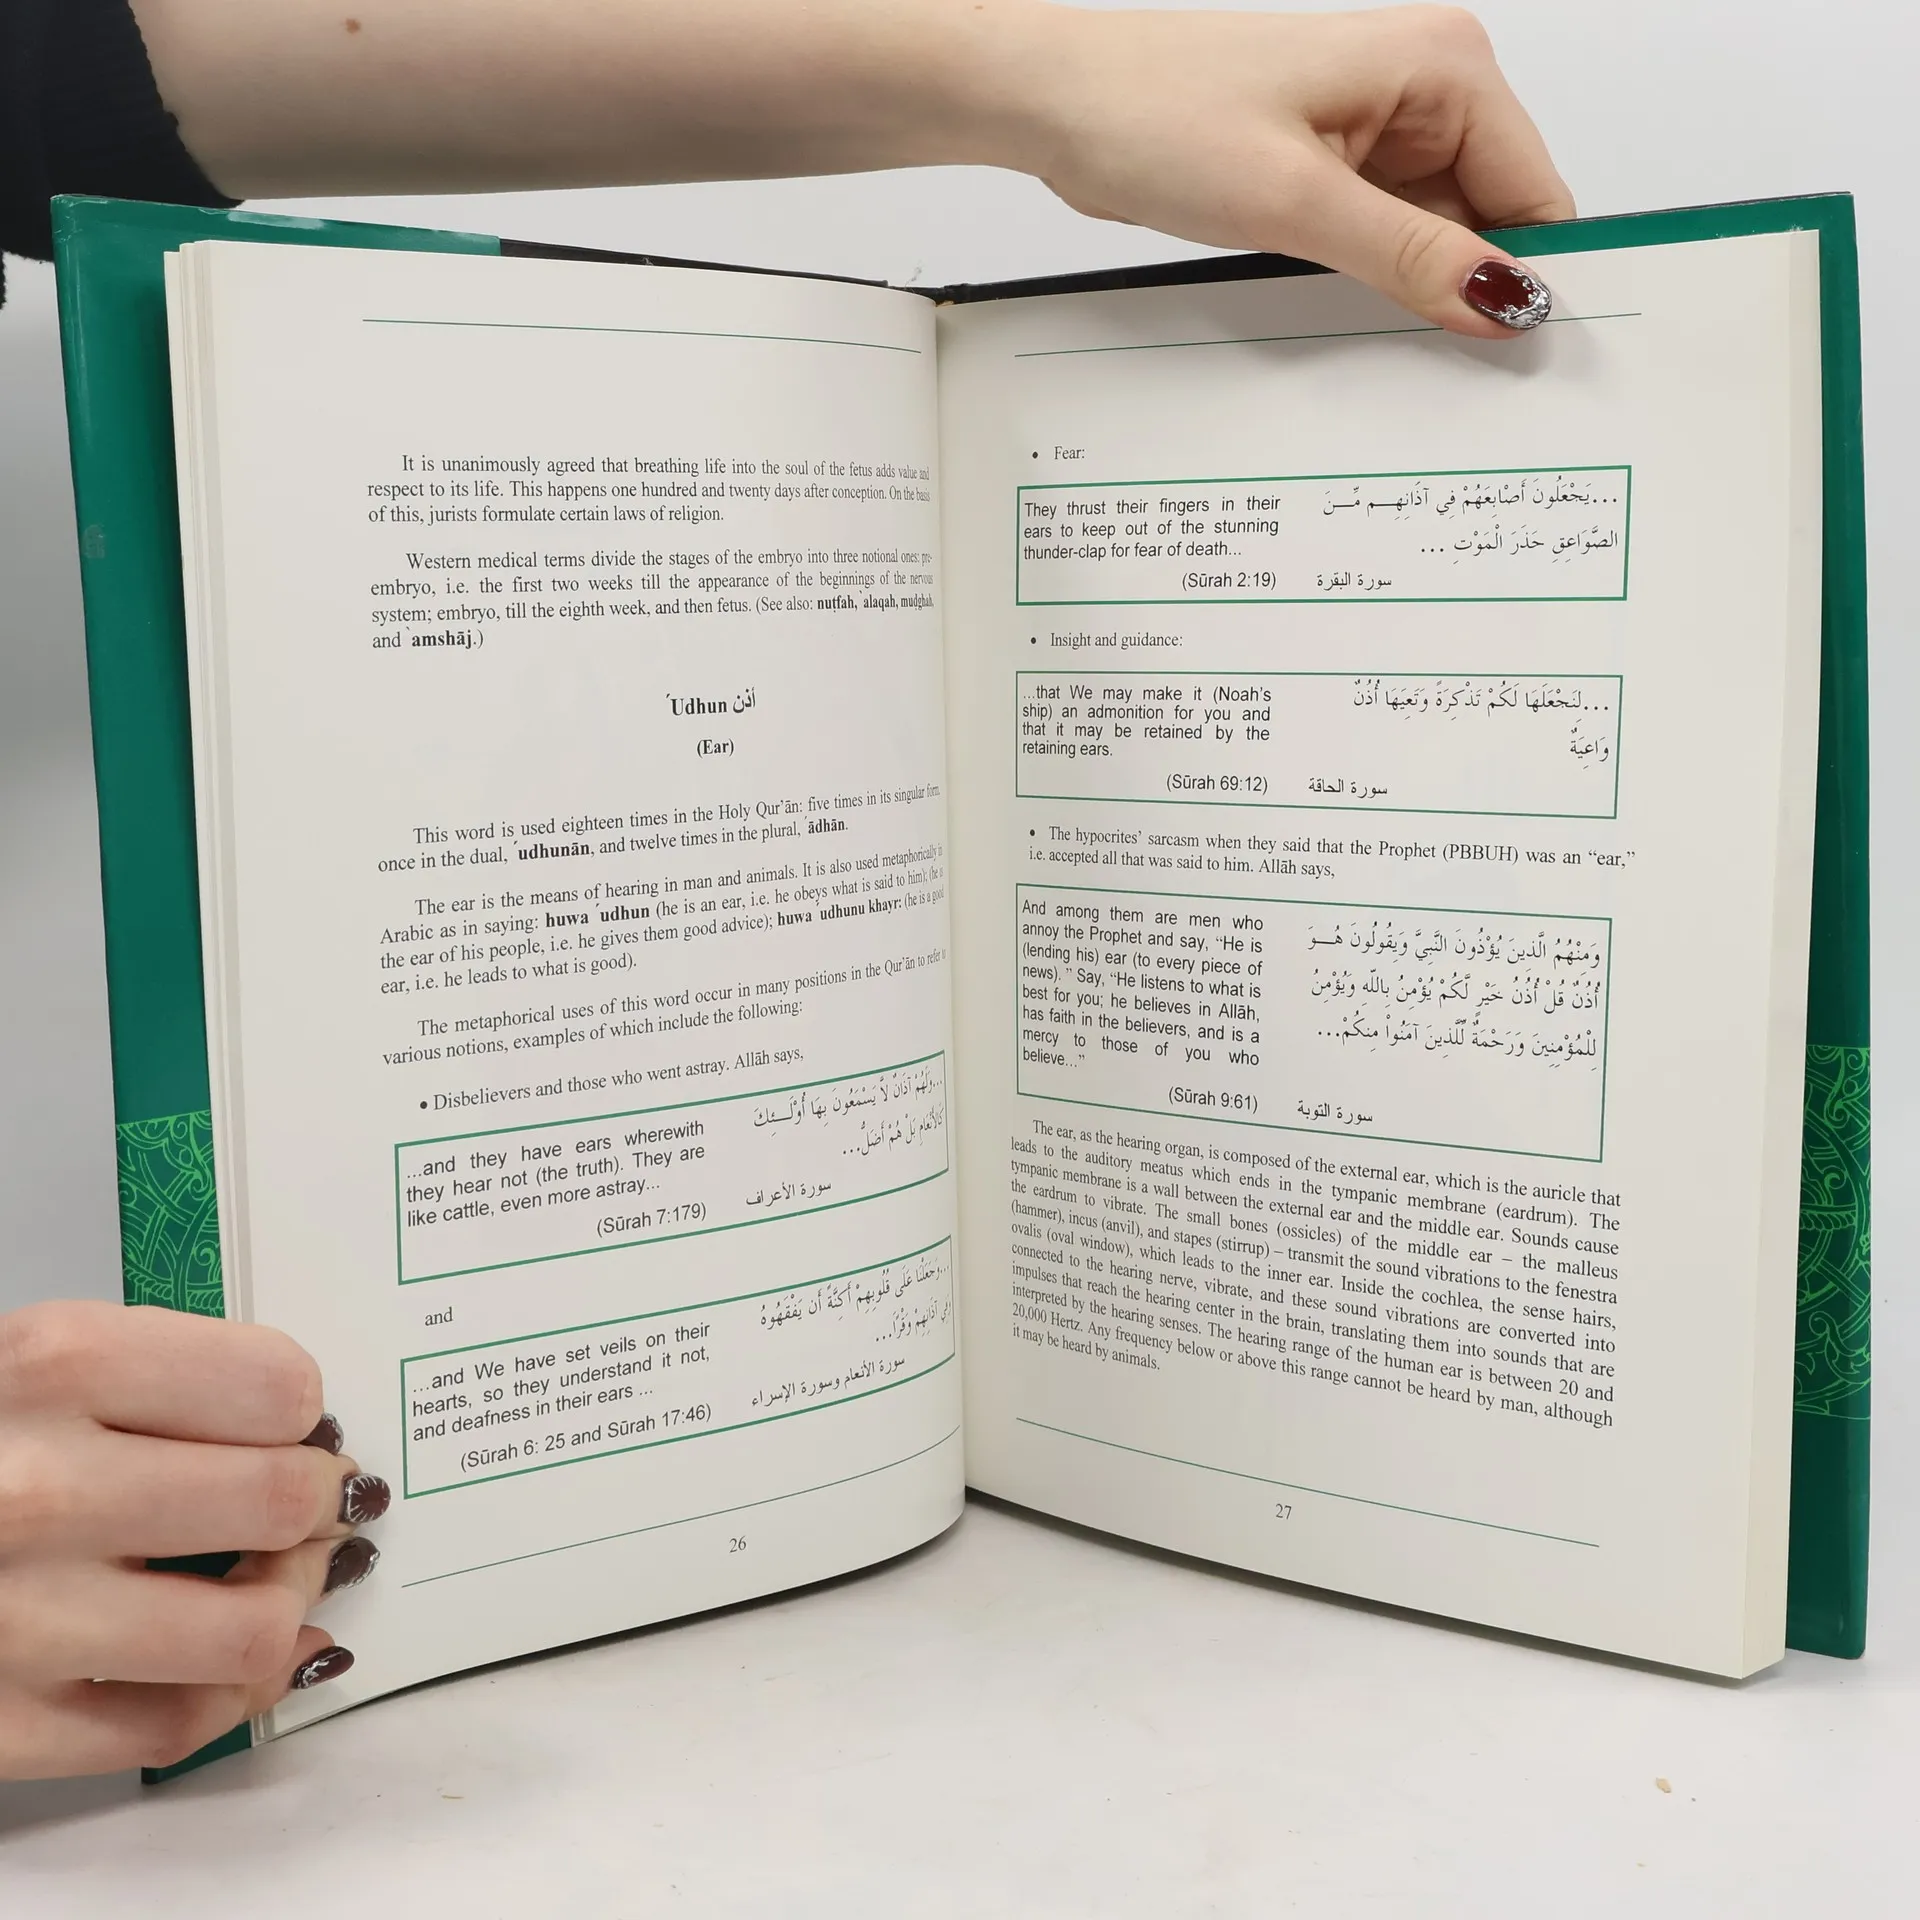 It is unanimously agreed that breathing life into the soul of the fetus adds value and
respect to its life. This happens one hundred and twenty days after conception. On the basis
of this, jurists formulate certain laws of religion.
Western medical terms divide the stages of the embryo into three notional ones: pre-
embryo, i.e. the first two weeks till the appearance of the beginnings of the nervous
system; embryo, till the eighth week, and then fetus. (See also: nuṭfah, `alaqah, mudghah,
and `amshāj.)
´Udhun أذن
(Ear)
This word is used eighteen times in the Holy Qur’ān: five times in its singular form,
once in the dual, ´udhunān, and twelve times in the plural, ´ādhān.
The ear is the means of hearing in man and animals. It is also used metaphorically in
Arabic as in saying: huwa ´udhun (he is an ear, i.e. he obeys what is said to him); (he is
the ear of his people, i.e. he gives them good advice); huwa ´udhunu khayr: (he is a good
ear, i.e. he leads to what is good).
The metaphorical uses of this word occur in many positions in the Qur’ān to refer to
various notions, examples of which include the following:
• Disbelievers and those who went astray. Allāh says,
...and they have ears wherewith
they hear not (the truth). They are
like cattle, even more astray...
(Sūrah 7:179)
...وَلَهُمْ آذَانٌ لاَّ يَسْمَعُونَ بِهَا أُوْلَـئِكَ
كَالأَنْعَامِ بَلْ هُمْ أَضَلُّ...
سورة الأعراف
and
...and We have set veils on their
hearts, so they understand it not,
and deafness in their ears ...
(Sūrah 6: 25 and Sūrah 17:46)
...وَجَعَلْنَا عَلَى قُلُوبِهِمْ أَكِنَّةً أَن يَفْقَهُوهُ
وَفِي آذَانِهِمْ وَقْرًا...
سورة الأنعام وسورة الإسراء
26
• Fear:
They thrust their fingers in their
ears to keep out of the stunning
thunder-clap for fear of death...
(Sūrah 2:19)
...يَجْعَلُونَ أَصْابِعَهُمْ فِي آذَانِهِم مِّنَ
الصَّوَاعِقِ حَذَرَ الْمَوْتِ ...
سورة البقرة
• Insight and guidance:
...that We may make it (Noah’s
ship) an admonition for you and
that it may be retained by the
retaining ears.
(Sūrah 69:12)
...لِنَجْعَلَهَا لَكُمْ تَذْكِرَةً وَتَعِيَهَا أُذُنٌ
وَاعِيَةٌ
سورة الحاقة
• The hypocrites’ sarcasm when they said that the Prophet (PBBUH) was an “ear,”
i.e. accepted all that was said to him. Allāh says,
And among them are men who
annoy the Prophet and say, “He is
(lending his) ear (to every piece of
news). ” Say, “He listens to what is
best for you; he believes in Allāh,
has faith in the believers, and is a
mercy to those of you who
believe...”
(Sūrah 9:61)
وَمِنْهُمُ الَّذِينَ يُؤْذُونَ النَّبِيَّ وَيَقُولُونَ هُـوَ
أُذُنٌ قُلْ أُذُنُ خَيْرٍ لَّكُمْ يُؤْمِنُ بِاللّهِ وَيُؤْمِنُ
لِلْمُؤْمِنِينَ وَرَحْمَةٌ لِّلَّذِينَ آمَنُواْ مِنكُمْ...
سورة التوبة
The ear, as the hearing organ, is composed of the external ear, which is the auricle that
leads to the auditory meatus which ends in the tympanic membrane (eardrum). The
tympanic membrane is a wall between the external ear and the middle ear. Sounds cause
the eardrum to vibrate. The small bones (ossicles) of the middle ear – the malleus
(hammer), incus (anvil), and stapes (stirrup) – transmit the sound vibrations to the fenestra
ovalis (oval window), which leads to the inner ear. Inside the cochlea, the sense hairs,
connected to the hearing nerve, vibrate, and these sound vibrations are converted into
impulses that reach the hearing center in the brain, translating them into sounds that are
interpreted by the hearing senses. The hearing range of the human ear is between 20 and
20,000 Hertz. Any frequency below or above this range cannot be heard by man, although
it may be heard by animals.
27